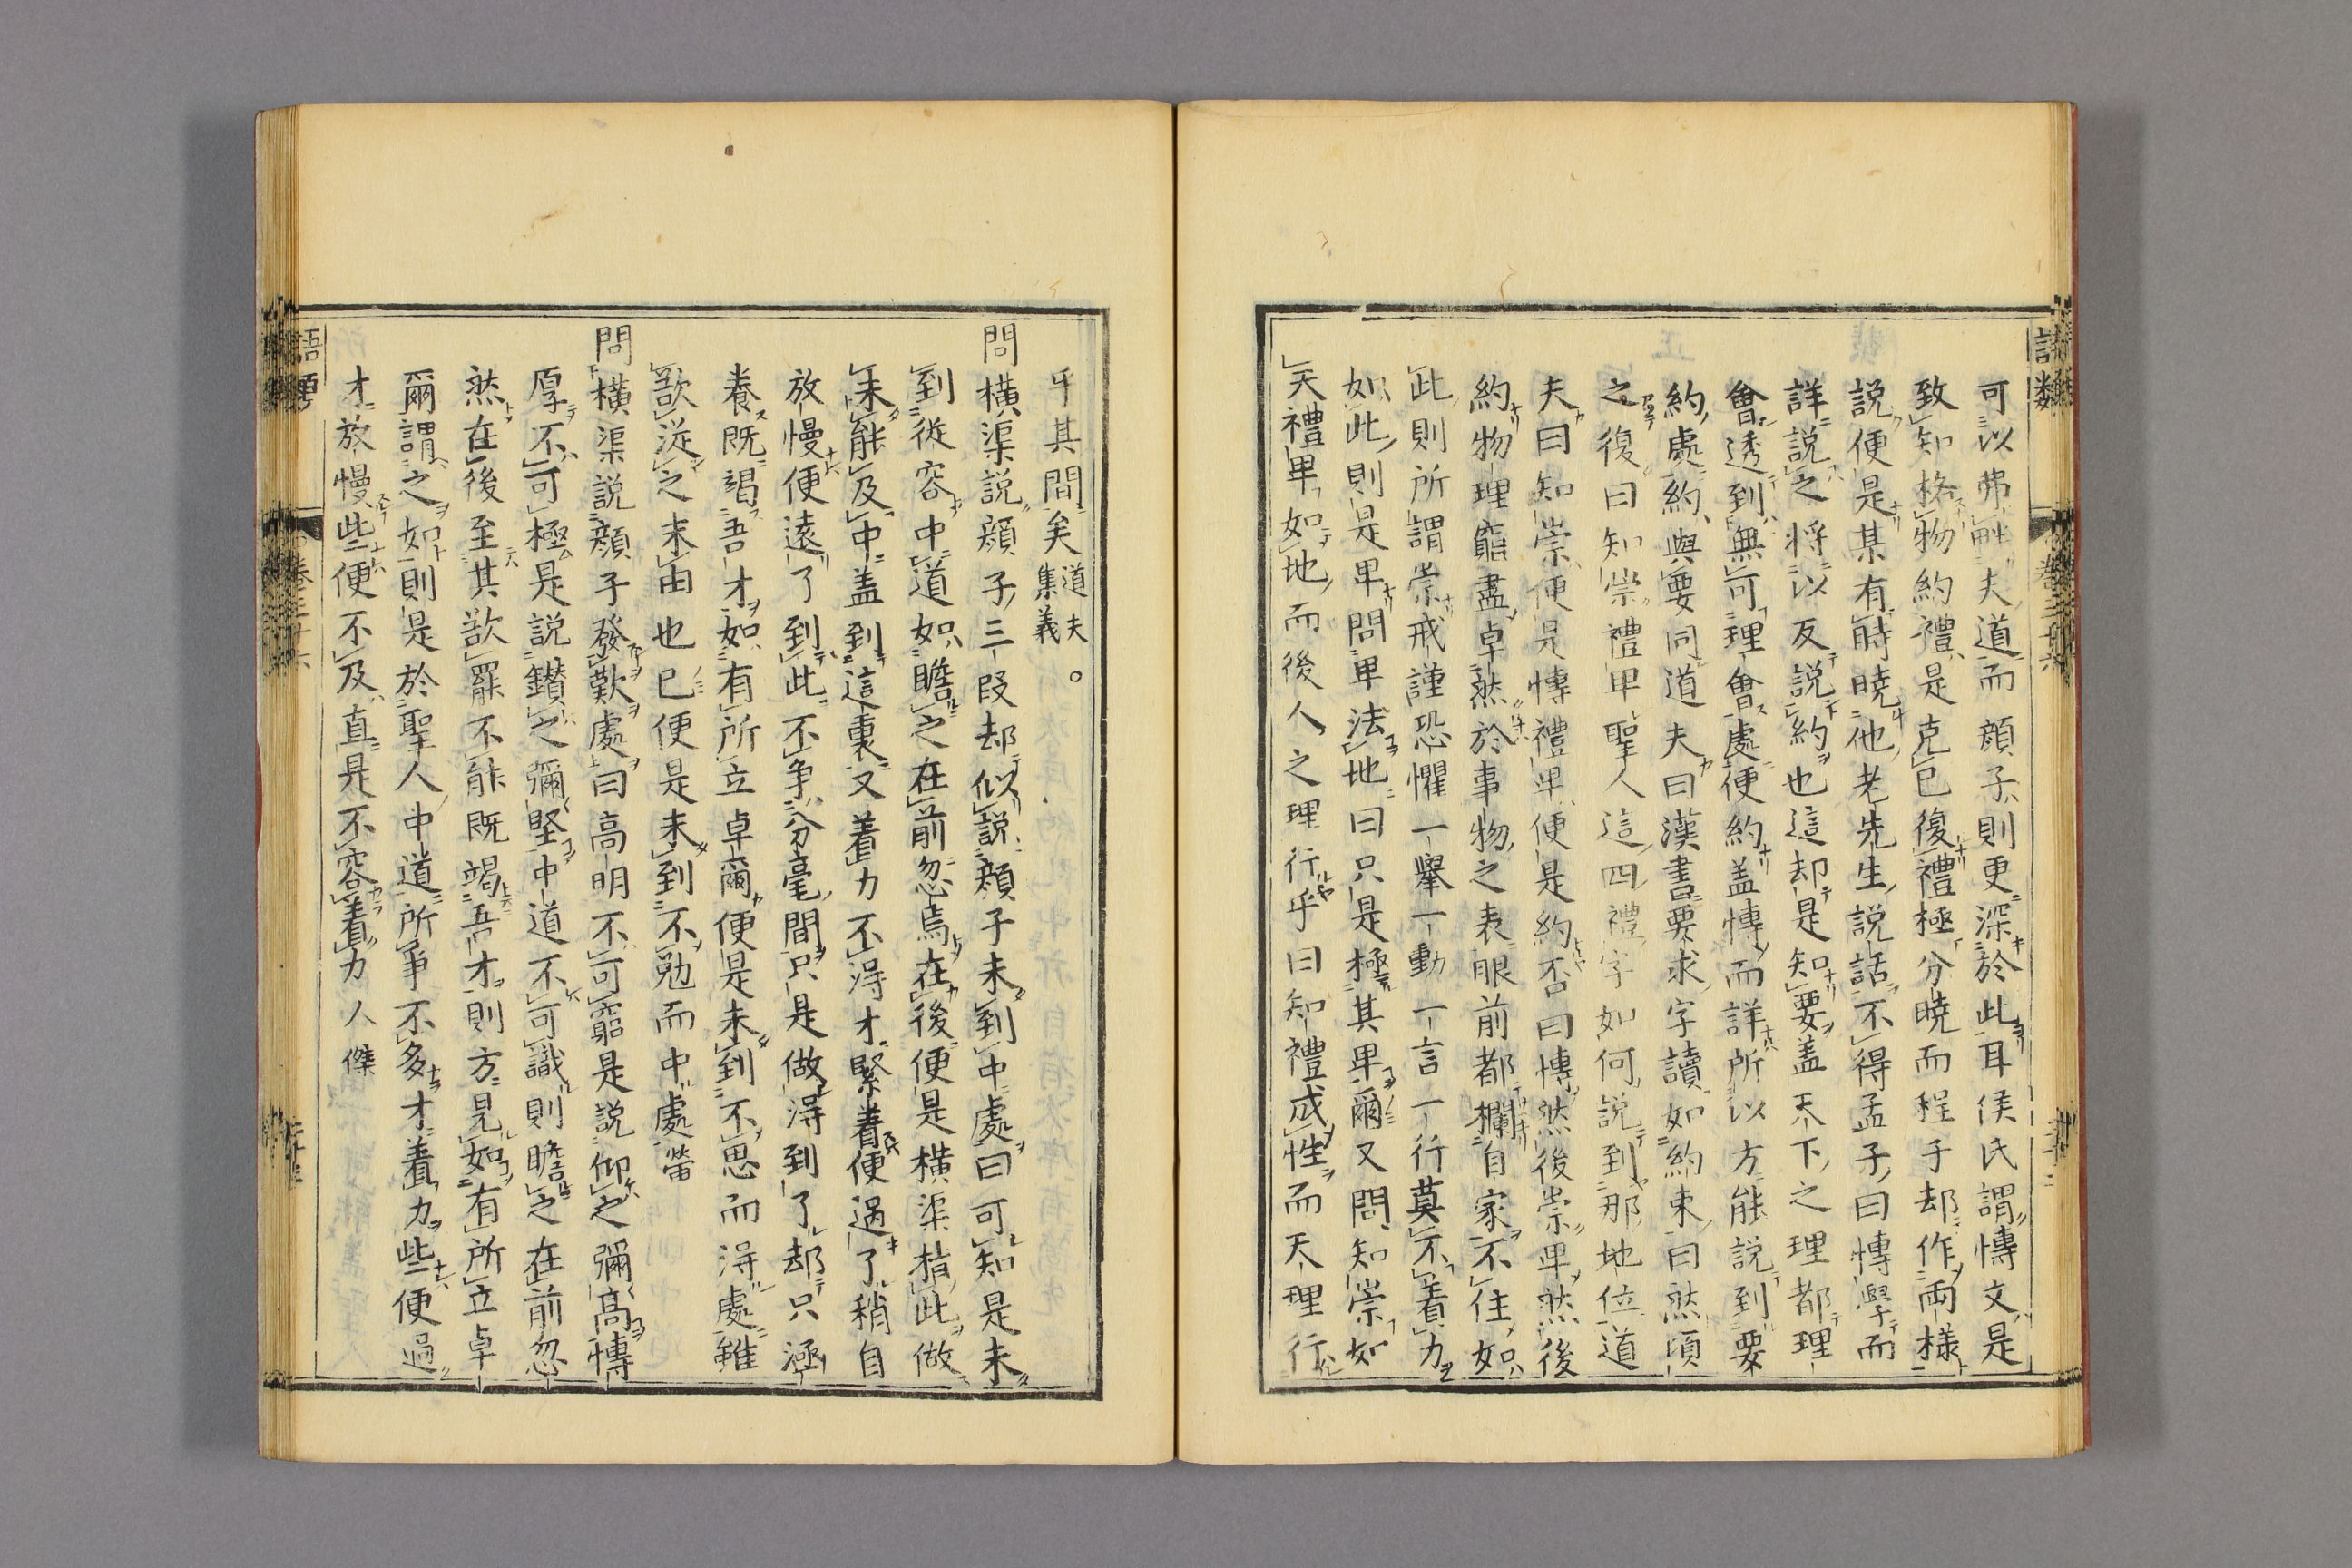 可以弗畔夫道而顔子則更深於此耳侯氏謂博文是
致知格物約禮是克己復禮極分曉而程子却作兩樣
説便是某有時曉他老先生説話不得孟子曰博學而
詳説之將以反説約也這却是知要盖天下之理都理
會透到無可理會處便約盖博而詳所以方能説到要
約處約與要同道夫曰漢書要求字讀如約束曰然頃
之復曰知崇禮卑聖人這四禮字如何説到那地位道
夫曰知崇便是博禮卑便是約否曰博然後崇卑然後
約物理窮盡卓然於事物之表眼前都欄自家不住如
此則所謂崇戒謹恐懼一舉一動一言一行莫不着力
如此則是卑問卑法地曰只是極其卑爾又問知崇如
天禮卑如地而後人之理行乎曰知禮成性而天理行
乎其間矣道夫集義。
問横渠説顔子三段却似説顔子未到中處曰可知是未
到從容中道如瞻之在前忽焉在後便是横渠指此做
未能及中盖到這裏又着力不得才緊着便過了稍自
放慢便遠了到此不爭分毫間只是做得到了却只涵
養既竭吾才如有所立卓爾便是未到不思而得處雖
欲從之末由也已便是未到不勉而中處㽦
問横渠説顔子發歎處曰高明不可窮是説仰之彌高博
厚不可極是説鑽之彌堅中道不可識則瞻之在前忽
然在後至其欲罷不能既竭吾才則方見如有所立卓
爾謂之如則是於聖人中道所爭不多才着力些便過
才放慢些便不及直是不容着力人傑
語類
卷三十六